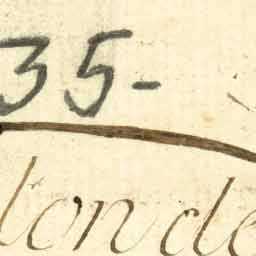 35-
londe